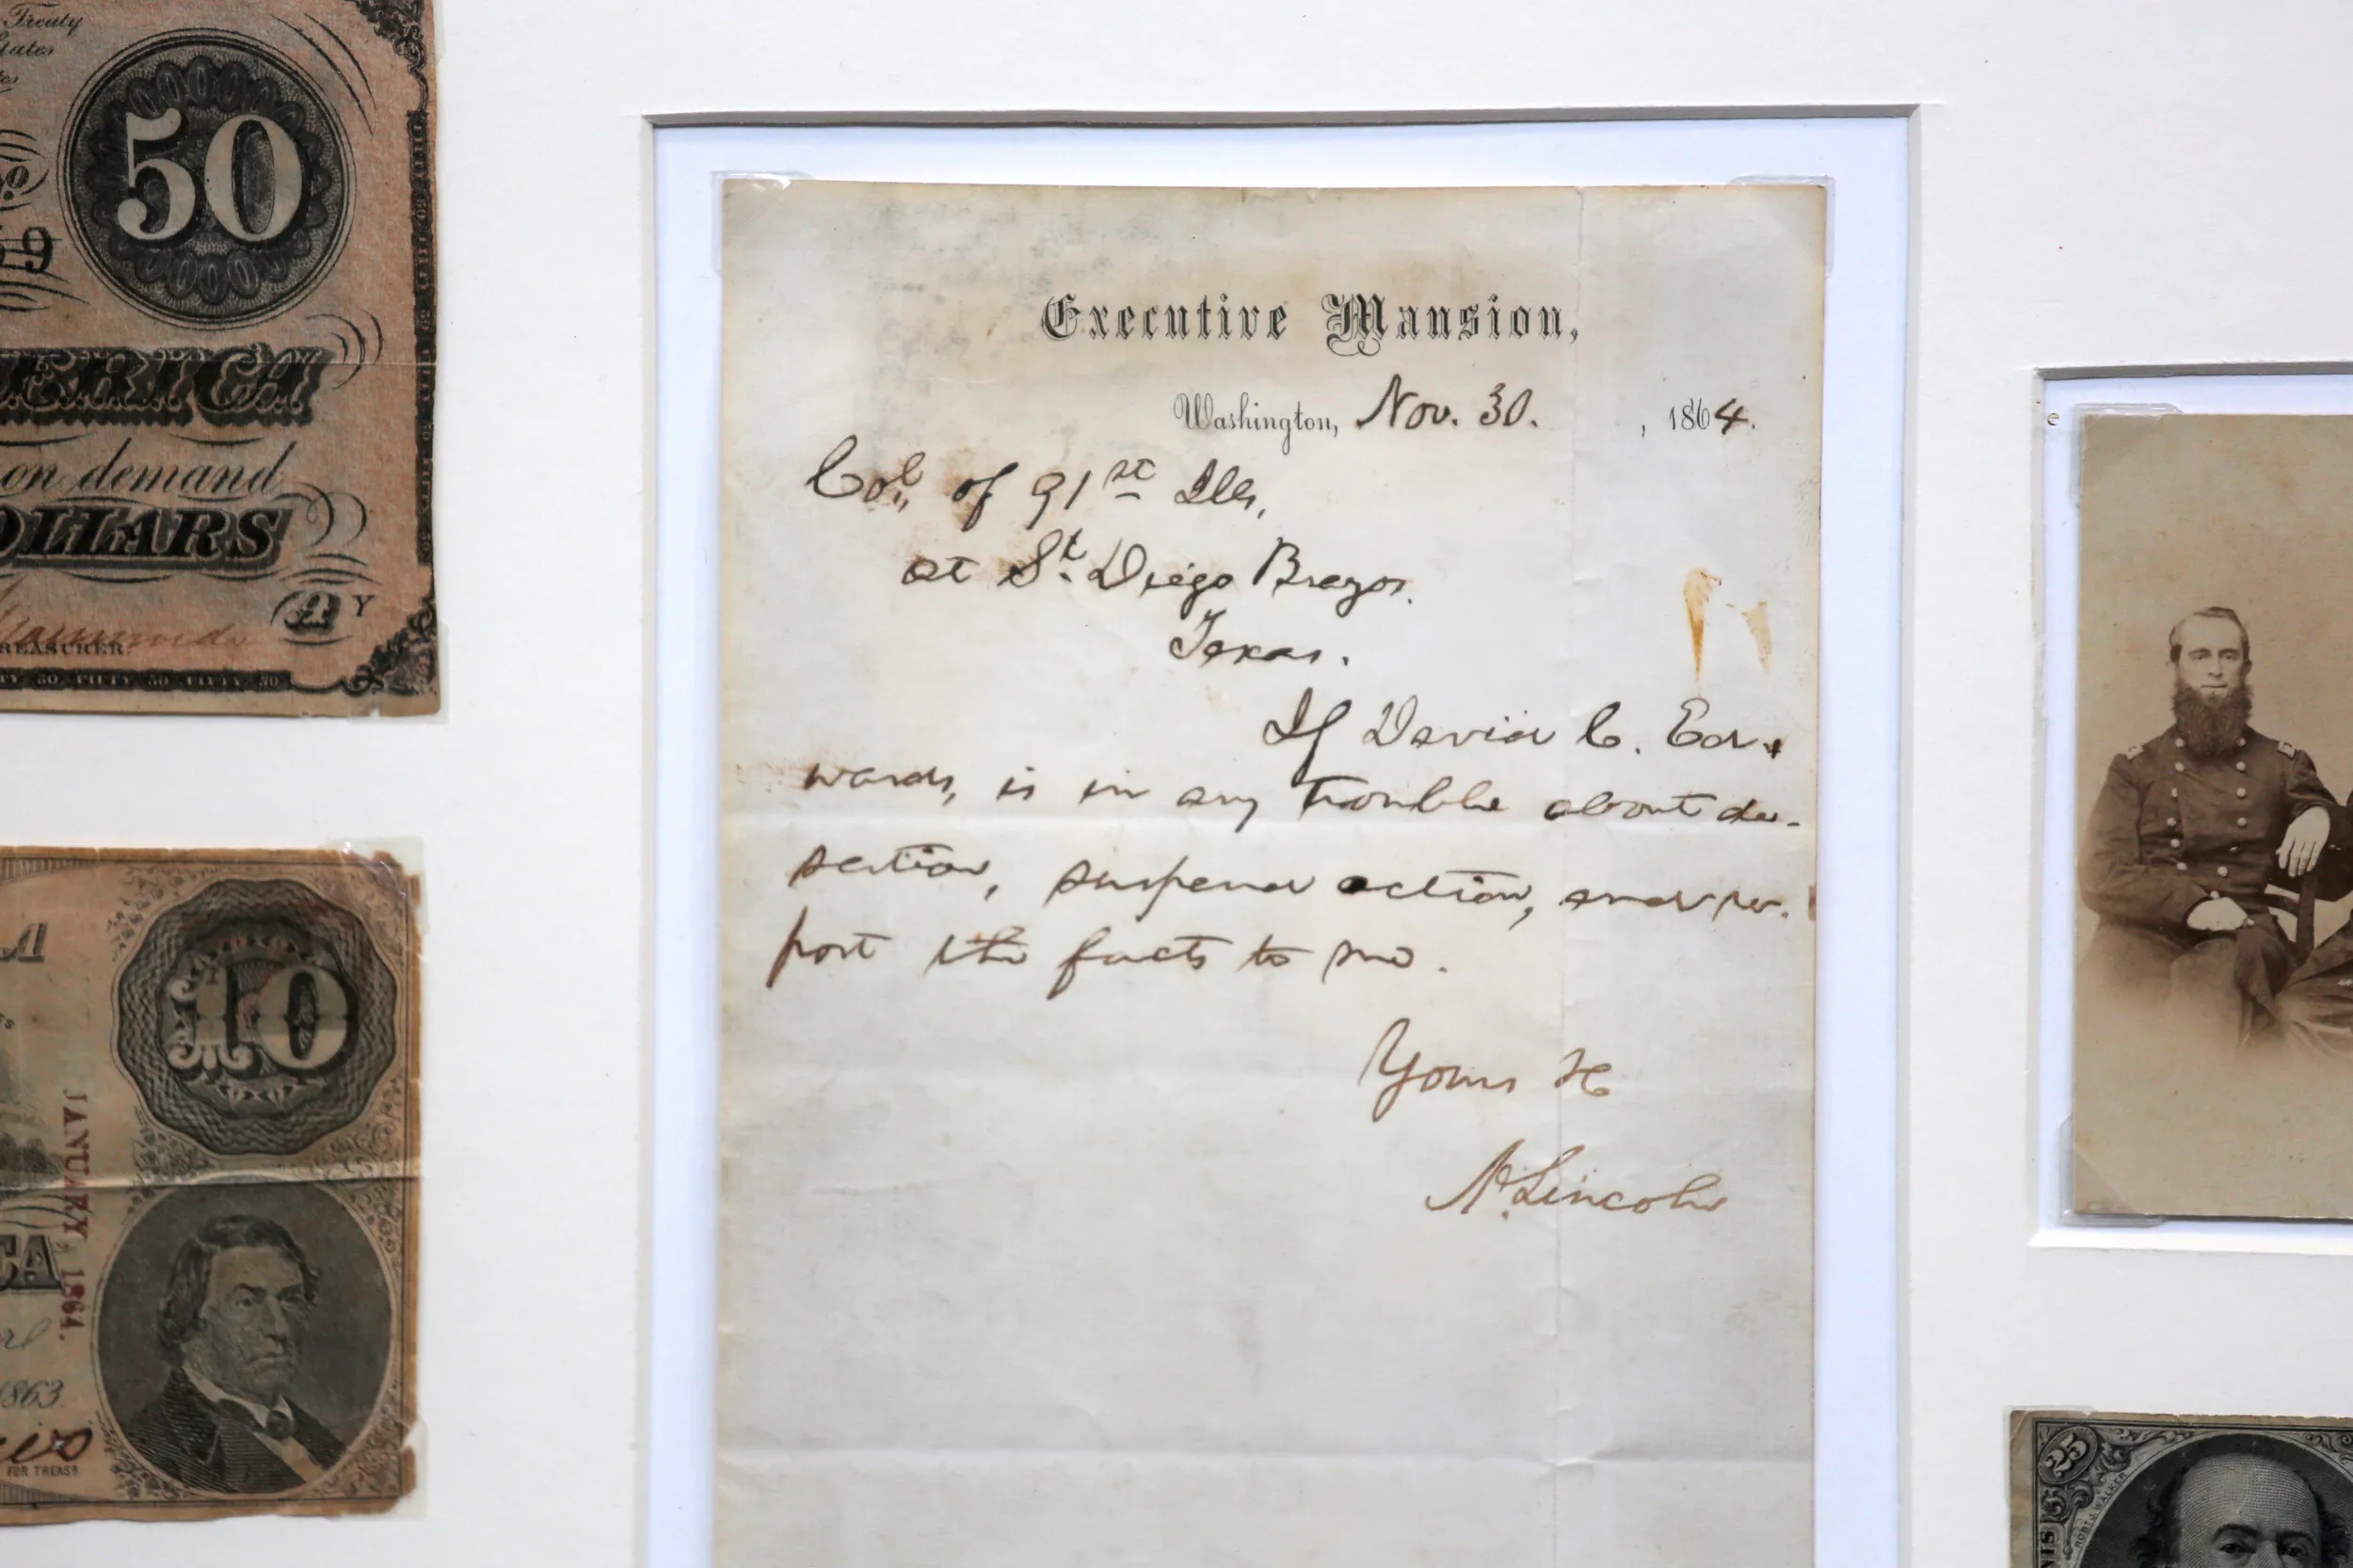 Treaty
States
50
9
ERICA
on demand
OLLARS
A Y
TREASURER
FIFTY 50 FIFTY 50
A
10
JANUARY, 1864.
CA
1863.
FOR TREASR.
Executive Mansion,
Washington, Nov. 30. , 1864.
Col. of 91st Ills,
at St. Diego Brazos.
Texas.
If David C. Ed-
wards, is in any trouble about de-
sertion, suspend action, and re-
port the facts to me.
Yours &c
A. Lincoln
e
25
ROBT. J. WALKER